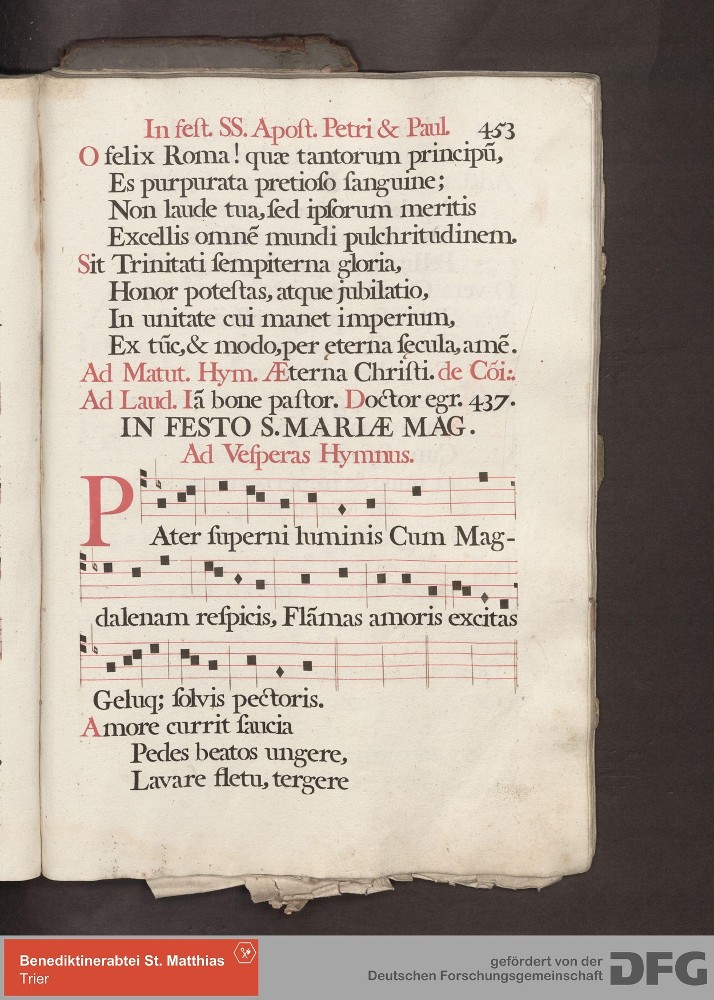 In feſt. SS. Apoſt. Petri & Paul. 453
O felix Roma! quæ tantorum principũ,
Es purpurata pretioſo ſanguine;
Non laude tua, ſed ipſorum meritis
Excellis omnẽ mundi pulchritúdinem.
Sit Trinitati ſempiterna gloria,
Honor poteſtas, atque jubilatio,
In unitate cui manet imperium,
Ex tũc, & modo, per ęterna ſęcula, amẽ.
Ad Matut. Hym. Æterna Chriſti. de Cõi:.
Ad Laud. Iã bone paſtor. Doctor egr. 437.
IN FESTO S. MARIÆ MAG.
Ad Veſperas Hymnus.
PAter ſuperni luminis Cum Mag-
dalenam reſpicis, Flãmas amoris excitas
Geluq; ſolvis pectoris.
Amore currit ſaucia
Pedes beatos ungere,
Lavare fletu, tergere
Benediktinerabtei St. Matthias
Trier
gefördert von der
Deutschen Forschungsgemeinschaft
DFG